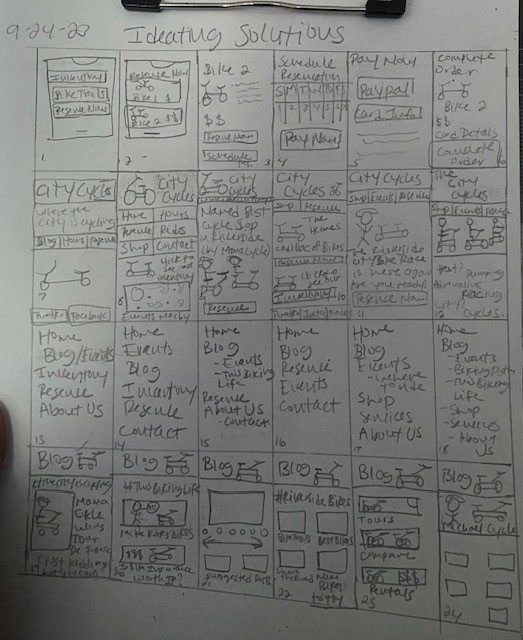 9-24-23 Ideating Solutions
Inventory
Bike Trails
Reserve Now
1
Reserve Now
Bike 1 $
Bike 2 $$
2
Bike 2
$$
Reserve Now
Schedule
3
Schedule
Reservation
S M T W T F S
1 2 3 4 5
Pay Now
4
Pay Now
Paypal
Card Info
5
Complete
Order
Bike 2
$$
Card Details
Complete
Order
6
City Cycles
Where the
City is cycling
Blog Hours Reserve
7
Twitter Facebook
City
Cycles
Home Hours
Reserve Rides
Shop Contact
click to
see our
inventory
8
Events Nearby
City
Cycles
Named Best
Cycle Shop
in Riverside
(by Mama Cycle)
9
Reserve
City
Cycles
Shop Reserve
The
Hermes
Cadillac of Bikes
Reserve Now
click to
see our
Inventory
10
Twitter Insta Face
City Cycles
Shop Events Reserve
The Riverside
City Bike Race
is here again
Are you ready?
Reserve Now
11
The
City
Cycles
Shop Events Reserve
Alternative
City
Cycles
12
Home
Blog/Events
Inventory
Reserve
About Us
13
Home
Events
Blog
Inventory
Reserve
Contact
14
Home
Blog
- Events
- Two Biking
Life
Reserve
About Us
- Contact
15
Home
Blog
Reserve
Events
Contact
16
Home
Blog
Events
- where
to ride
Shop
Services
About Us
17
Home
Blog
- Events
- Biking Posts
- Two Biking
Life
- Shop
- Services
- About
Us
18
Blog
Mama
Cycle
Wins
Tour
De France
19
Blog
#TwoBikingLife
$$$
Insurance
Worth It?
20
Blog
Suggested Posts
21
Blog
#RiversideBikes
Bike Trails
Best Bikes
22
Blog
Tours
Compare
$$$
Rentals
23
Blog
Michael Cycle
24